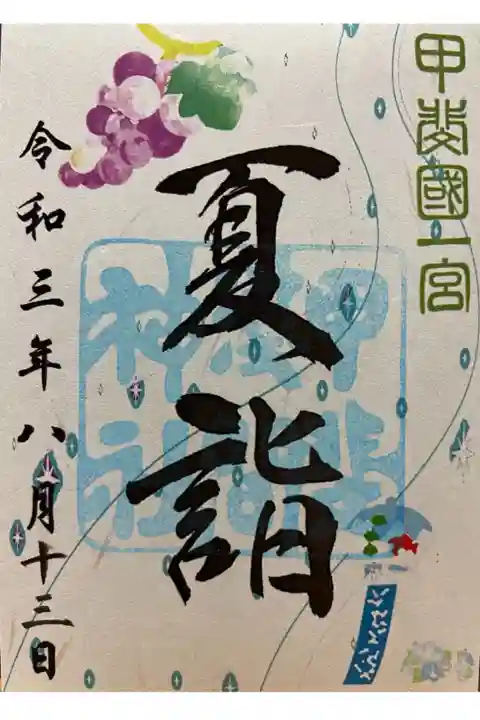 甲斐國一宮
夏詣
甲斐浅間神社
令和三年八月十三日